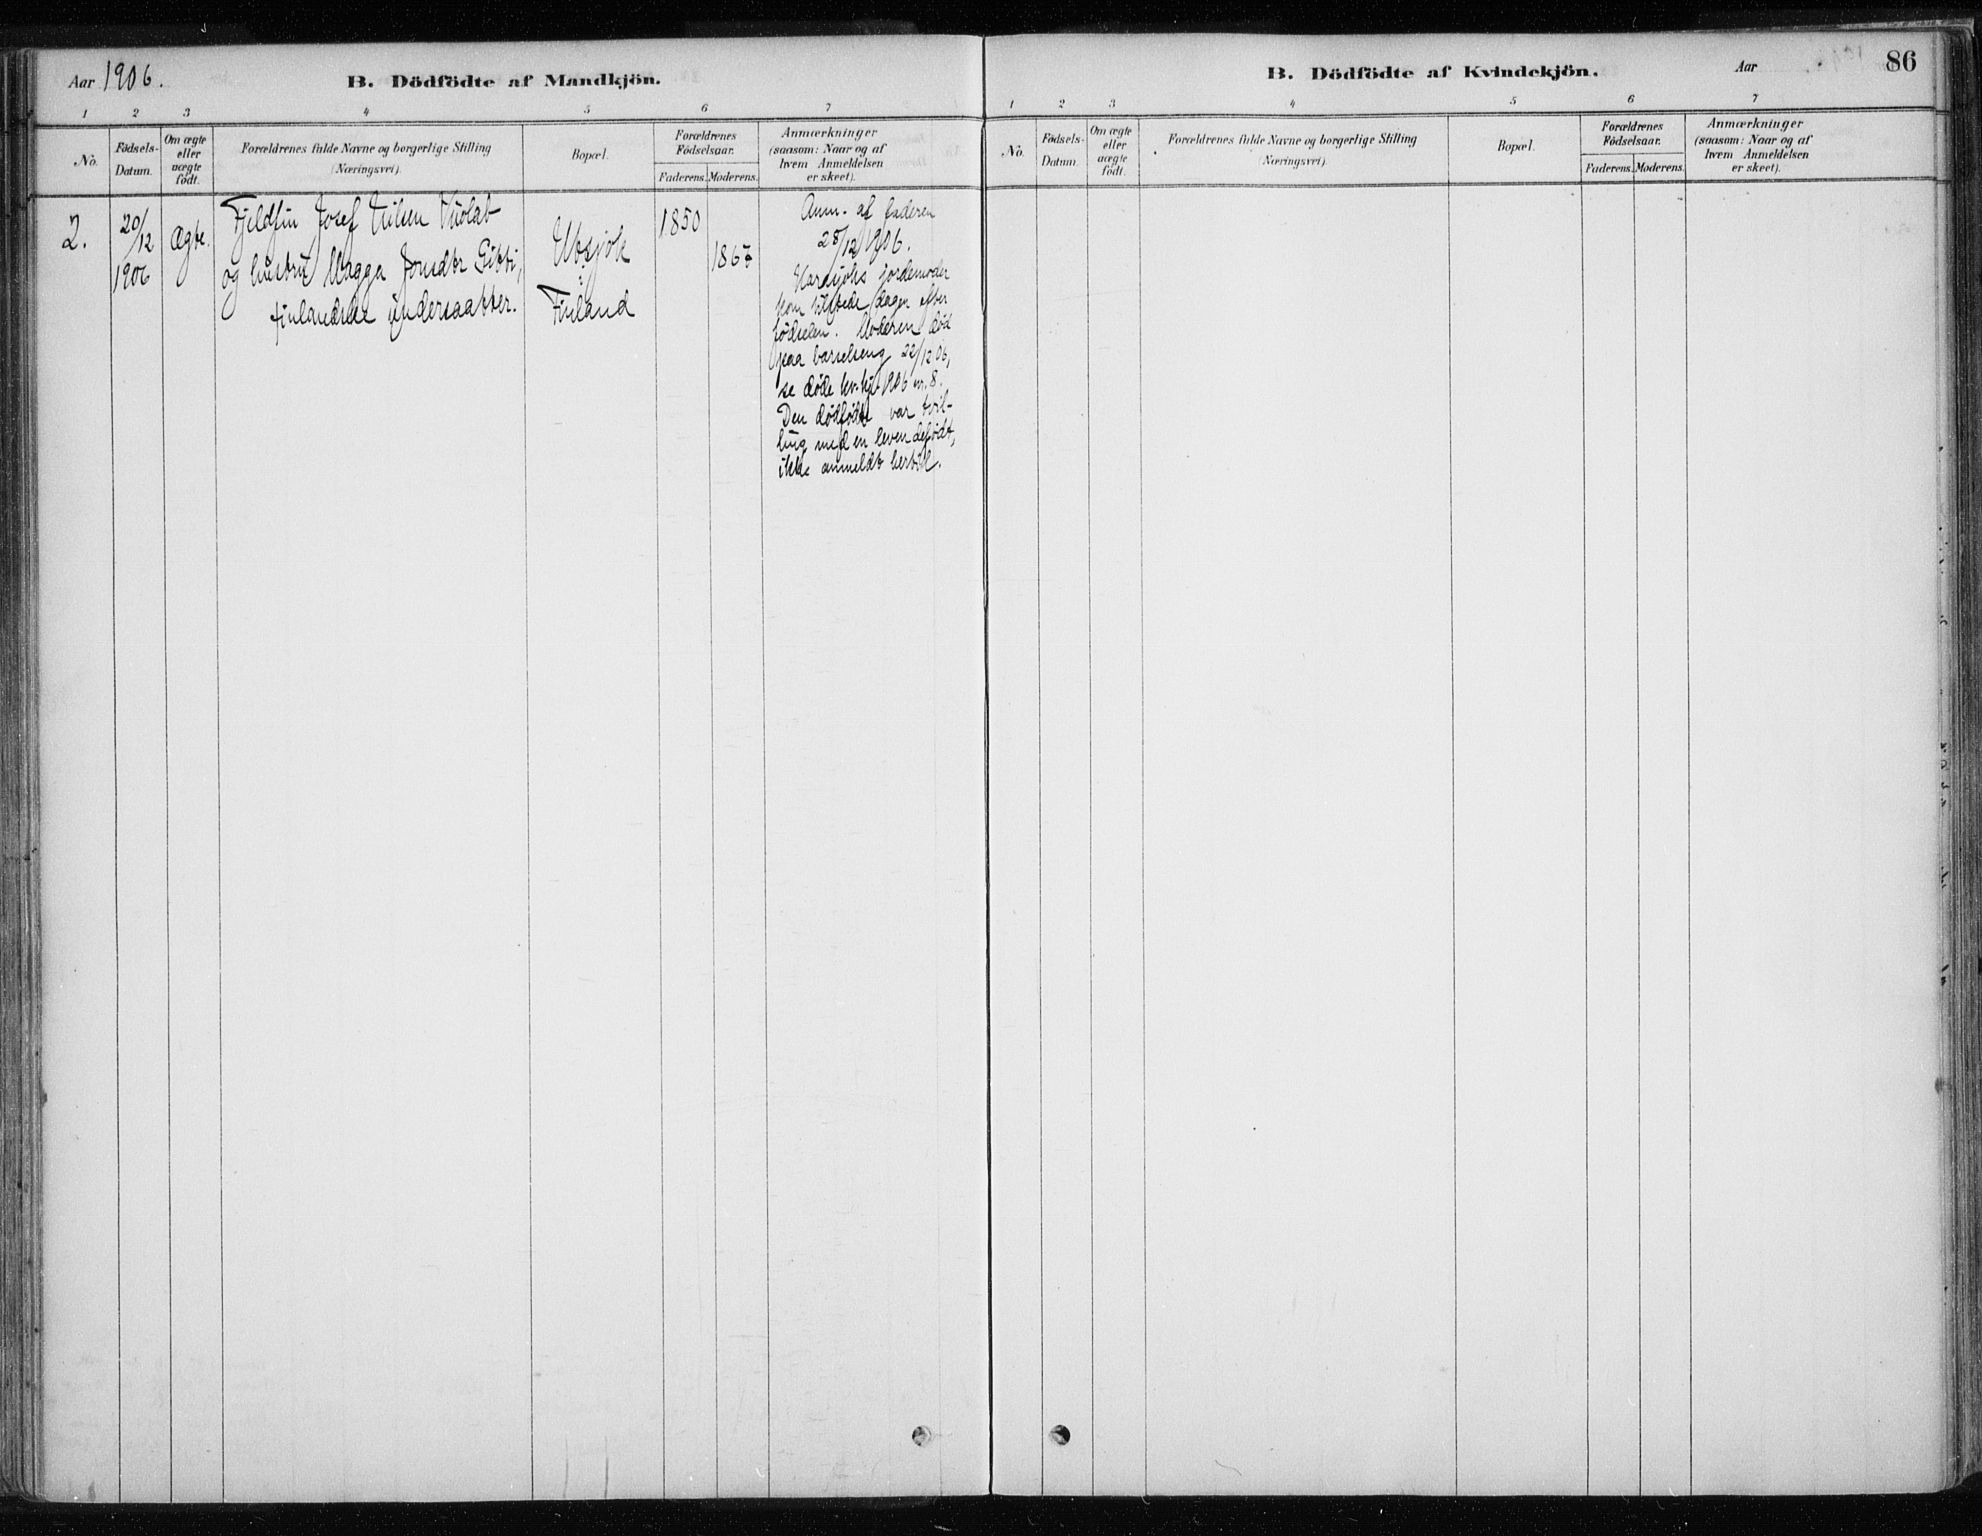 Aar 1906.
B. Dödfödte af Mandkjön.
1 2 3 4 5 6 7
No.
Födsels-
Datum.
Om ægte
eller
uægte
födt.
Forældrenes fulde Navne og borgerlige Stilling
(Næringsvei).
Bopæl.
Forældrenes
Födselsaar.
Faderens. Moderens.
Anmærkninger
(saasom: Naar og af
hvem Anmeldelsen
er skeet).
2.
20/12
1906
Ægte.
Fjeldfin Josef Nilsen Vuolab
og hustru Magga Jonsdtr Gitti,
finlandske undersaatter.
Utsjok
i
Finland
1850
186
Anm. af faderen
28/12 1906.
Karasjoks jordemoder
kom tilstede dagen efter
fødselen. Moderen død
paa barselseng 22/12 06,
se døde kv.kj. 1906 nr. 8.
Den dødfødte var tvil-
ling med en levendefødt,
ikke anmeldt hertil.
B. Dödfödte af Kvindekjön.
Aar
86
1 2 3 4 5 6 7
No.
Födsels-
Datum.
Om ægte
eller
uægte
födt.
Forældrenes fulde Navne og borgerlige Stilling
(Næringsvei).
Bopæl.
Forældrenes
Födselsaar.
Faderens. Moderens.
Anmærkninger
(saasom: Naar og af
hvem Anmeldelsen
er skeet).